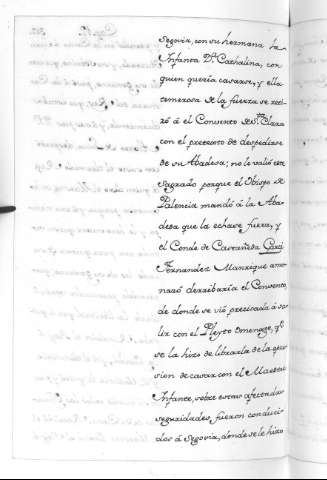 Segovia, con su hermana la
Infanta D.ª Cathalina, con
quien queria casarse, y ella
temerosa de la fuerza se reti-
ró á el Convento de S.ta Clara
con el pretexto de despedirse
de su Abadesa; no le valió este
Sagrado porque el Obispo de
Palencia mandó á la Aba-
desa que la echase fuera, y
el Conde de Castañeda Garci
Fernandez Manrique ame-
nazó derribaria el Convento,
de donde se vió precisada á sa-
lir con el Pleyto omenage, q.e
se la hizo de librarla de la opre-
sion de casar con el Maestre
Infante, sobre estas afectadas
seguridades, fueron conduci-
dos á Segovia, donde se le hizo